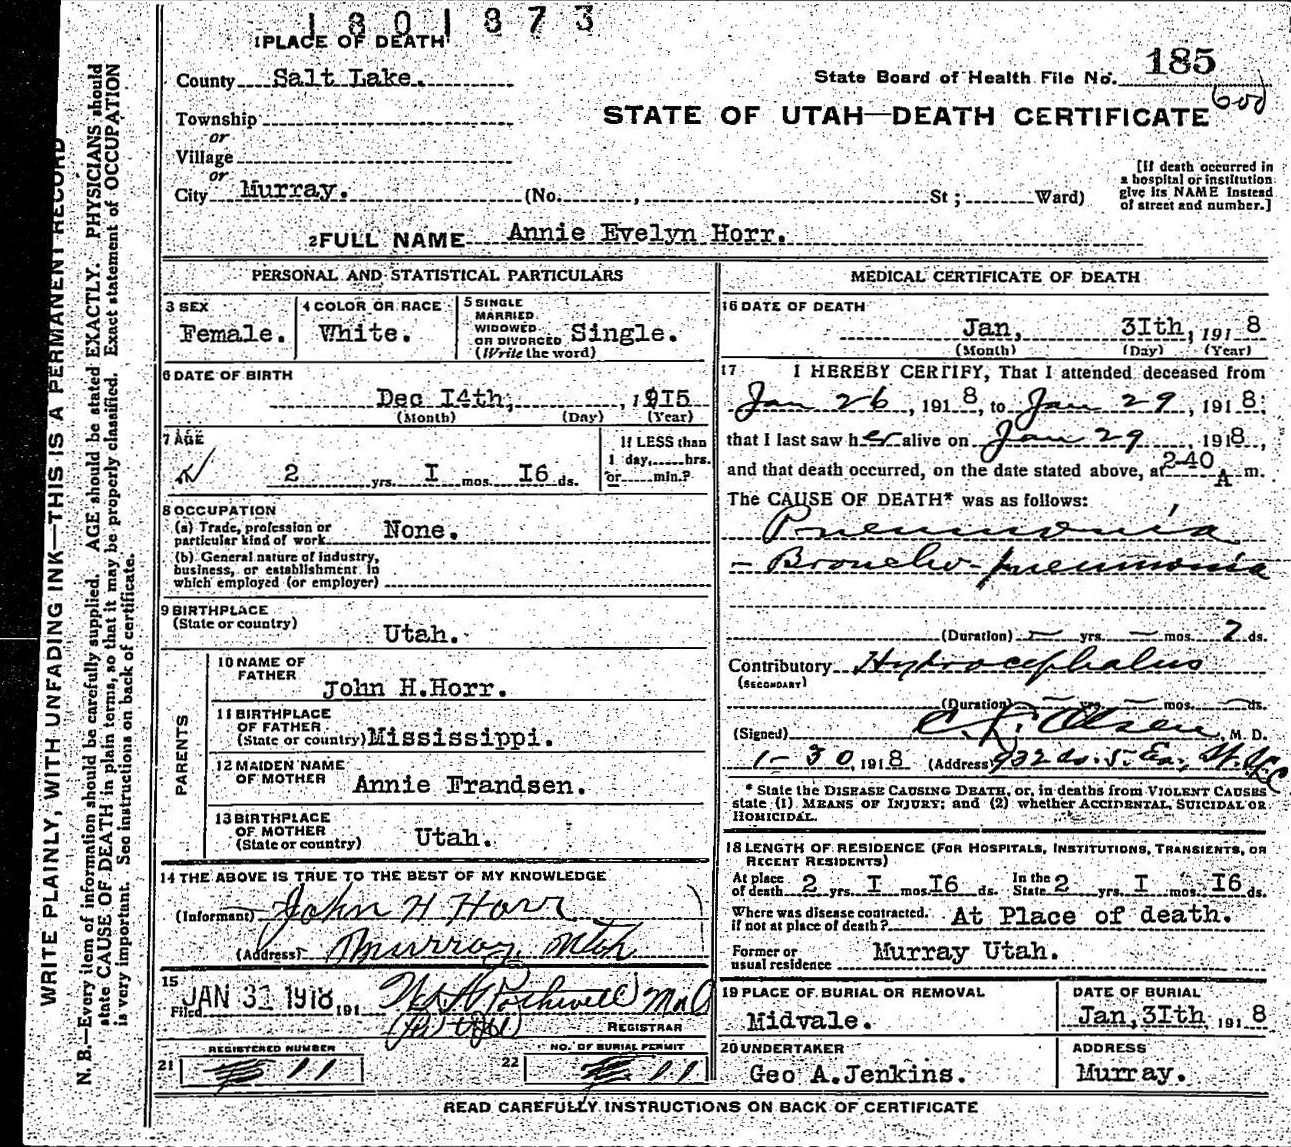 1801873
1 PLACE OF DEATH
County Salt Lake.
State Board of Health File No. 185
STATE OF UTAH—DEATH CERTIFICATE
Township
or
Village
or
City Murray. (No. , St ; Ward)
[If death occurred in
a hospital or institution
give its NAME instead
of street and number.]
2 FULL NAME Annie Evelyn Horr.
PERSONAL AND STATISTICAL PARTICULARS
3 SEX
Female.
4 COLOR OR RACE
White.
5 SINGLE
MARRIED
WIDOWED
OR DIVORCED Single.
(Write the word)
6 DATE OF BIRTH
Dec I4th, , 1915
(Month) (Day) (Year)
7 AGE
2 yrs. I mos. I6 ds.
If LESS than
1 day, hrs.
or min.?
8 OCCUPATION
(a) Trade, profession or
particular kind of work None.
(b) General nature of industry,
business, or establishment in
which employed (or employer)
9 BIRTHPLACE
(State or country) Utah.
PARENTS
10 NAME OF
FATHER
John H.Horr.
11 BIRTHPLACE
OF FATHER
(State or country) Mississippi.
12 MAIDEN NAME
OF MOTHER Annie Frandsen.
13 BIRTHPLACE
OF MOTHER
(State or country) Utah.
14 THE ABOVE IS TRUE TO THE BEST OF MY KNOWLEDGE
(Informant) John H Horr
(Address) Murray, Utah
15
Filed JAN 31 1918 191
REGISTRAR
REGISTERED NUMBER
21 11
NO. OF BURIAL PERMIT
22 11
MEDICAL CERTIFICATE OF DEATH
16 DATE OF DEATH
Jan, 3Ith, 191 8
(Month) (Day) (Year)
17 I HEREBY CERTIFY, That I attended deceased from
Jan 26 , 191 8, to Jan 29 , 191 8;
that I last saw her alive on Jan 29 , 1918,
and that death occurred, on the date stated above, at 2-40 A m.
The CAUSE OF DEATH* was as follows:
Pneumonia
- Broncho-pneumonia
(Duration) — yrs. — mos. 7 ds.
Contributory Hydrocephalus
(SECONDARY)
(Duration) — yrs. — mos. — ds.
(Signed) Olsen , M. D.
1-30, 1918 (Address)
* State the DISEASE CAUSING DEATH, or, in deaths from VIOLENT CAUSES
state (1) MEANS OF INJURY; and (2) whether ACCIDENTAL, SUICIDAL OR
HOMICIDAL.
18 LENGTH OF RESIDENCE (FOR HOSPITALS, INSTITUTIONS, TRANSIENTS, OR
RECENT RESIDENTS)
At place
of death 2 yrs. I mos. I6 ds. In the
State 2 yrs. I mos. I6 ds.
Where was disease contracted,
if not at place of death? At Place of death.
Former or
usual residence Murray Utah.
19 PLACE OF BURIAL OR REMOVAL
Midvale.
DATE OF BURIAL
Jan, 3Ith, 191 8
20 UNDERTAKER
Geo A.Jenkins.
ADDRESS
Murray.
READ CAREFULLY INSTRUCTIONS ON BACK OF CERTIFICATE
WRITE PLAINLY, WITH UNFADING INK—THIS IS A PERMANENT RECORD
N. B.—Every item of information should be carefully supplied. AGE should be stated EXACTLY. PHYSICIANS should
state CAUSE OF DEATH in plain terms, so that it may be properly classified. Exact statement of OCCUPATION
is very important. See instructions on back of certificate.